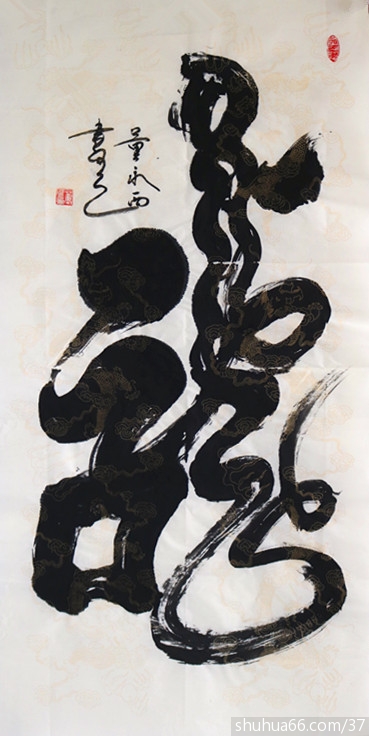 龍
董永西
書
shuhua66.com/37